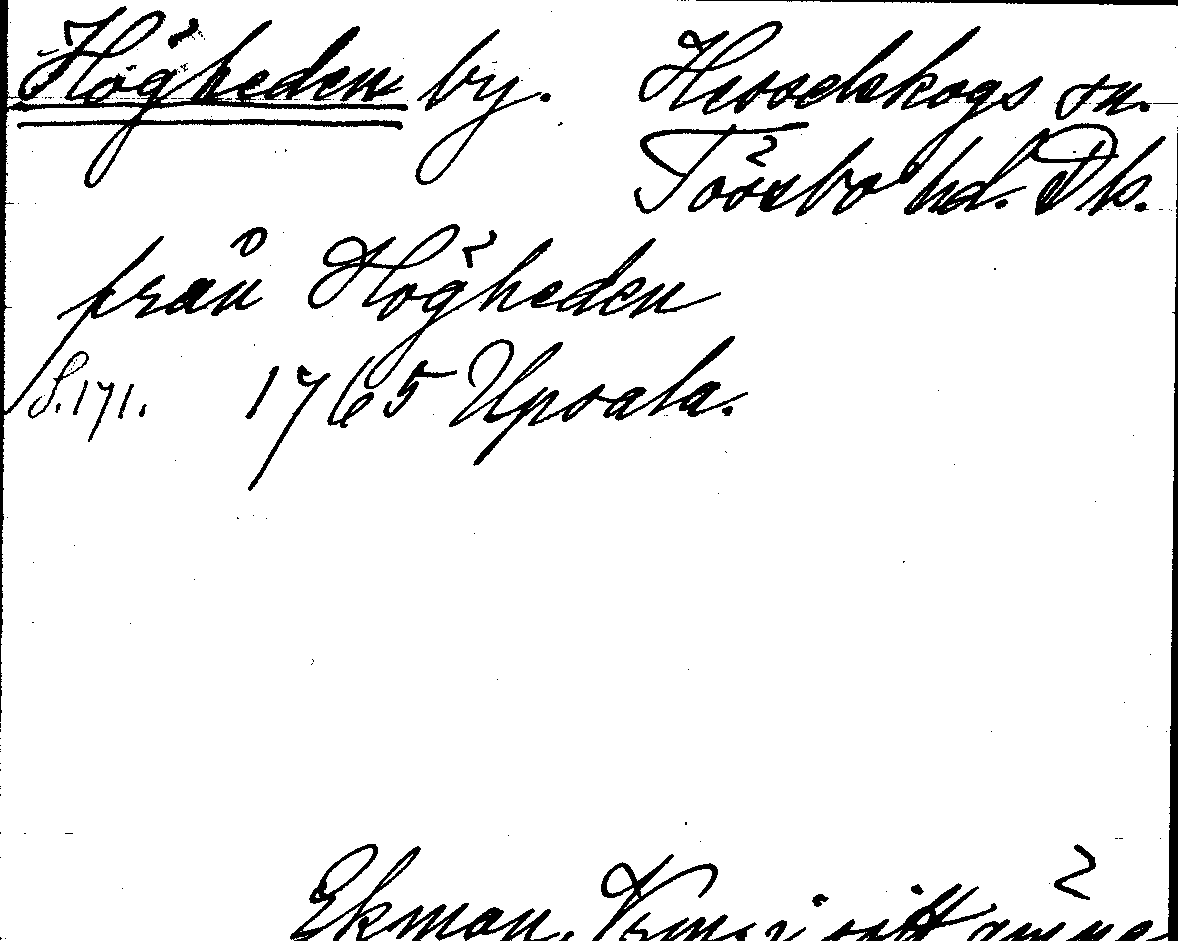 Högheden by. Hesselskogs sn.
Tössebo hd. Dls.
från Högheden
S. 171. 1765 Upsala.
Ekman, Verml. i sitt ämne